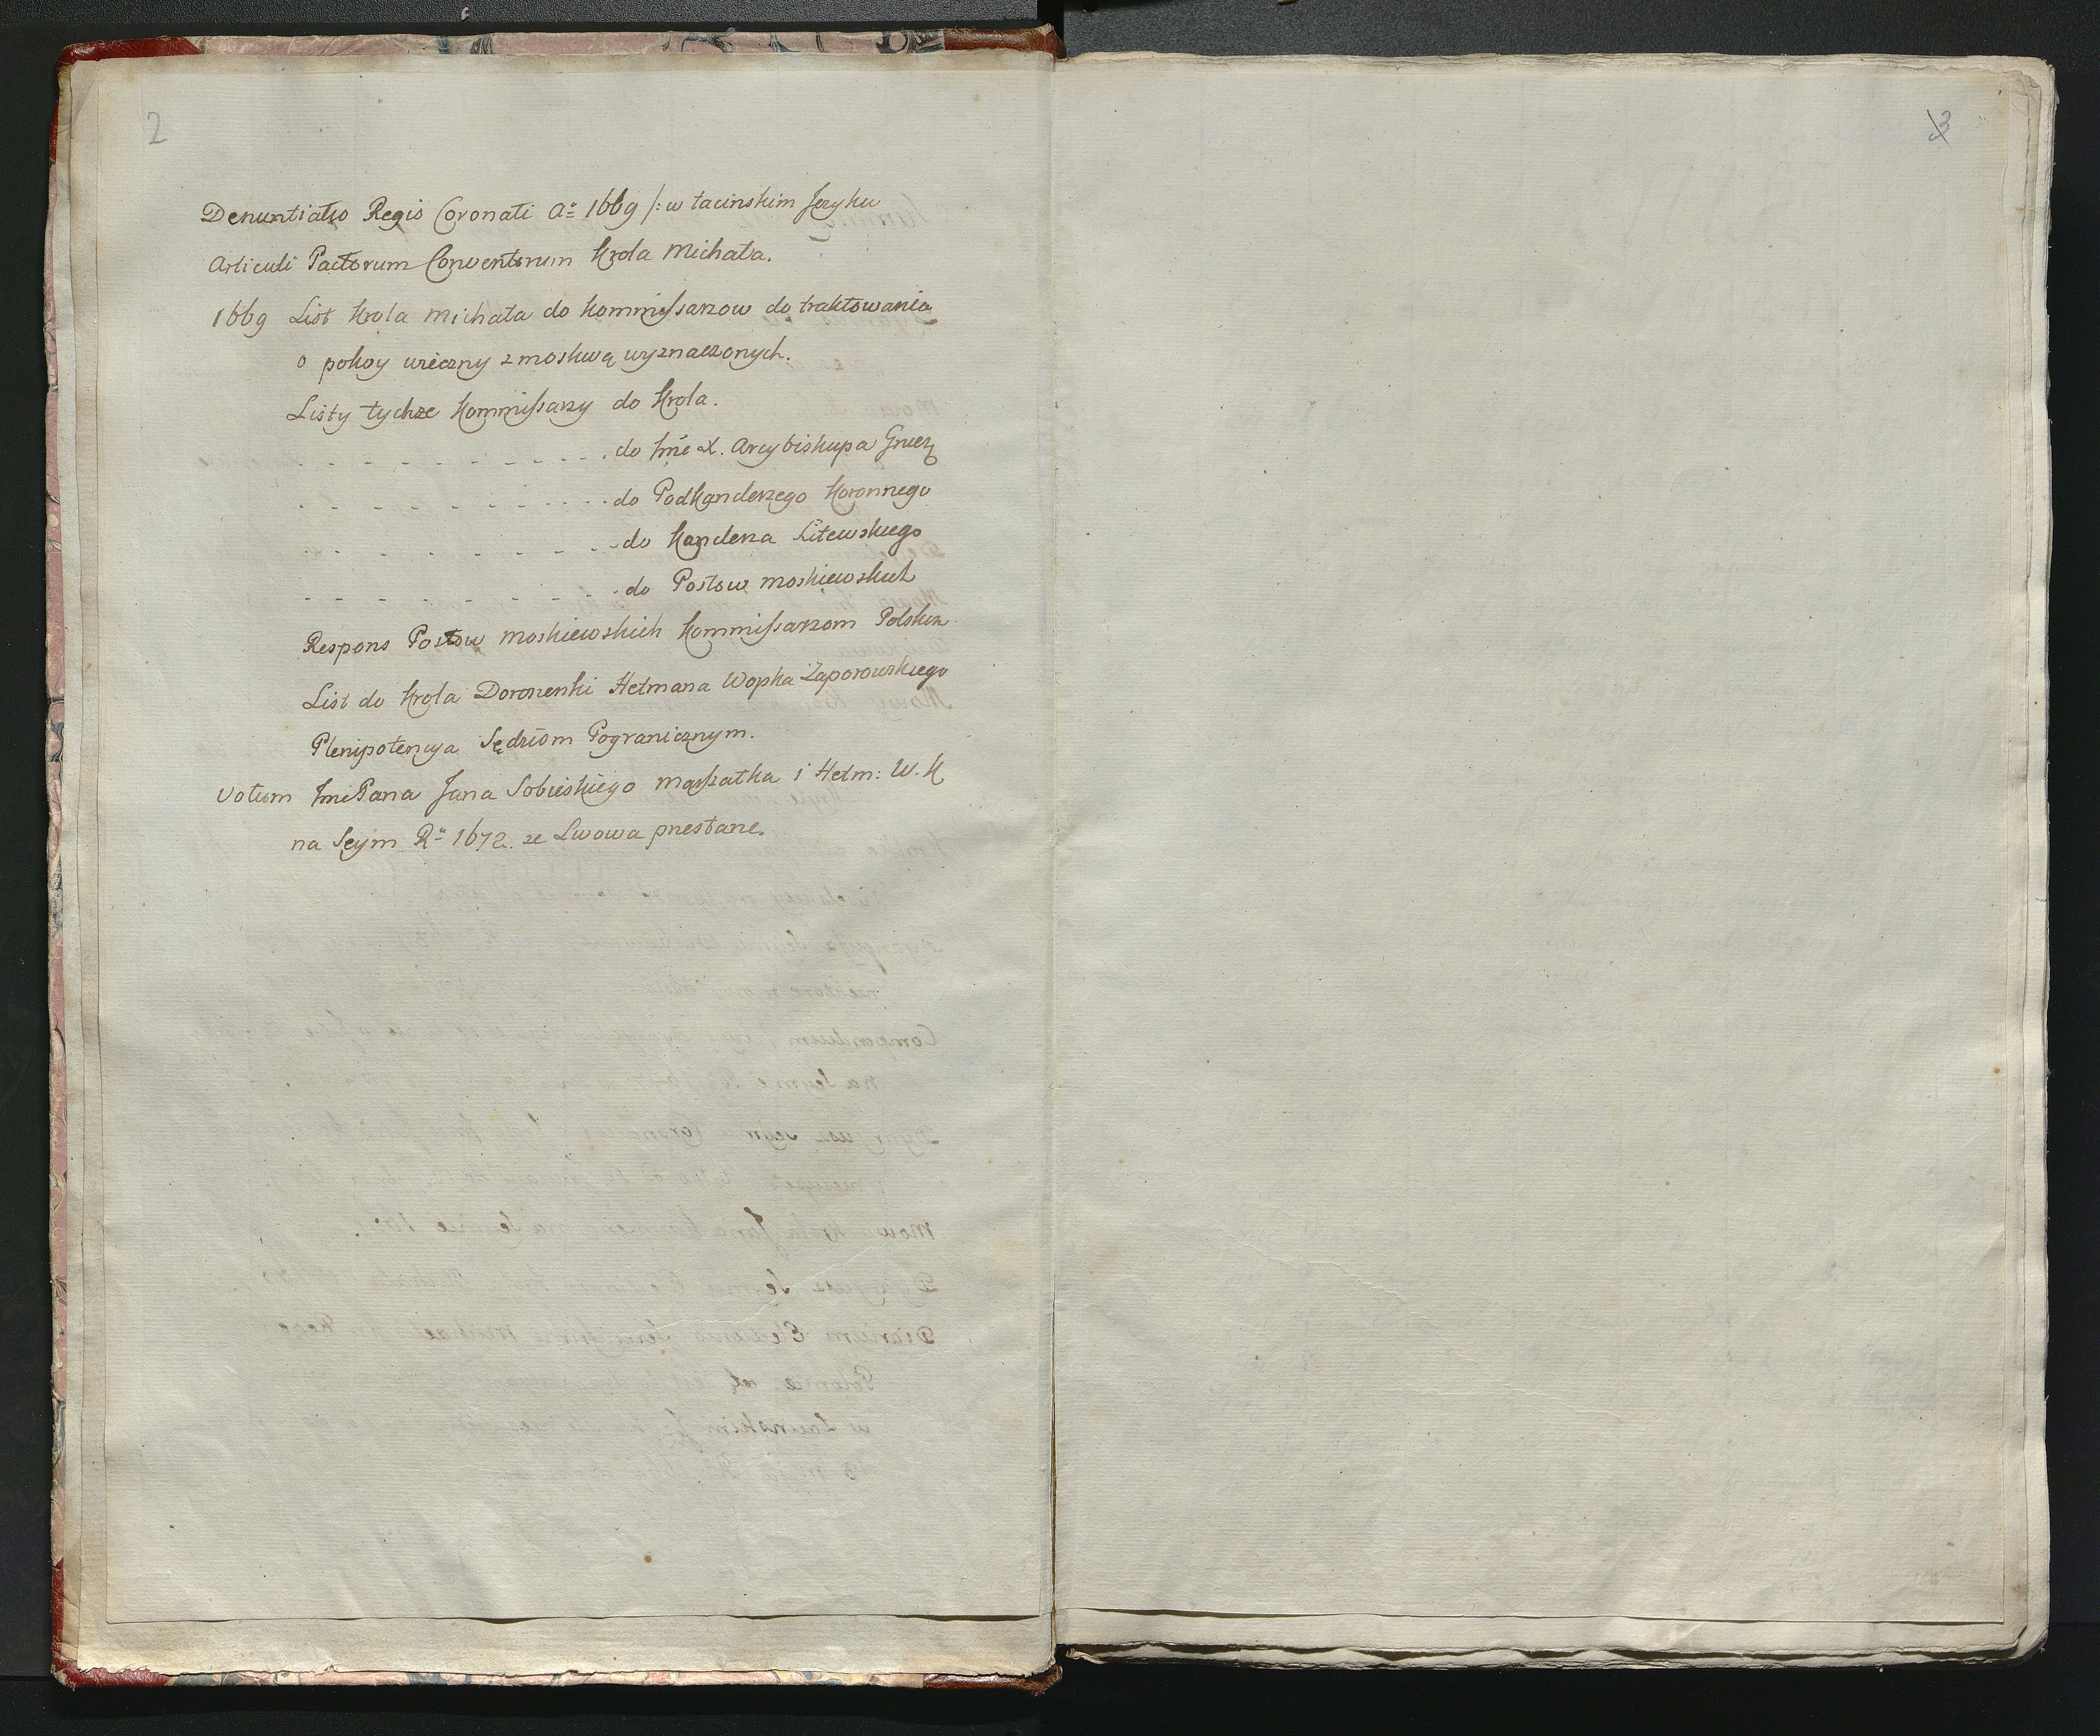 2
Denuntiatio Regis Coronati Aº 1669 /: w łacinskim Jezyku
Articuli Pactorum Conventorum Krola Michała.
1669 List Krola Michała do Kommissarzow do traktowania
o pokoy wieczny z moskwą wyznaczonych.
Listy tychże Kommissarzy do Krola.
. - - - - - - - - - - . do Jmć X. Arcybiskupa Gniez
. - - - - - - - - - - . do Podkanclerzego Koronnego
. - - - - - - - - - - . do Kanclerza Litewskiego
- - - - - - - - - - . do Posłow moskiewskich
Respons Posłow moskiewskich Kommissarzom Polskim
List do Krola Doroszenki Hetmana Woyska Zaporowskiego
Plenipotencya Sędziom Pogranicznym.
Votum Jmć Pana Jana Sobieskiego marszałka i Hetm: W. K
na Seym Rº 1672. ze Lwowa przesłane.
3